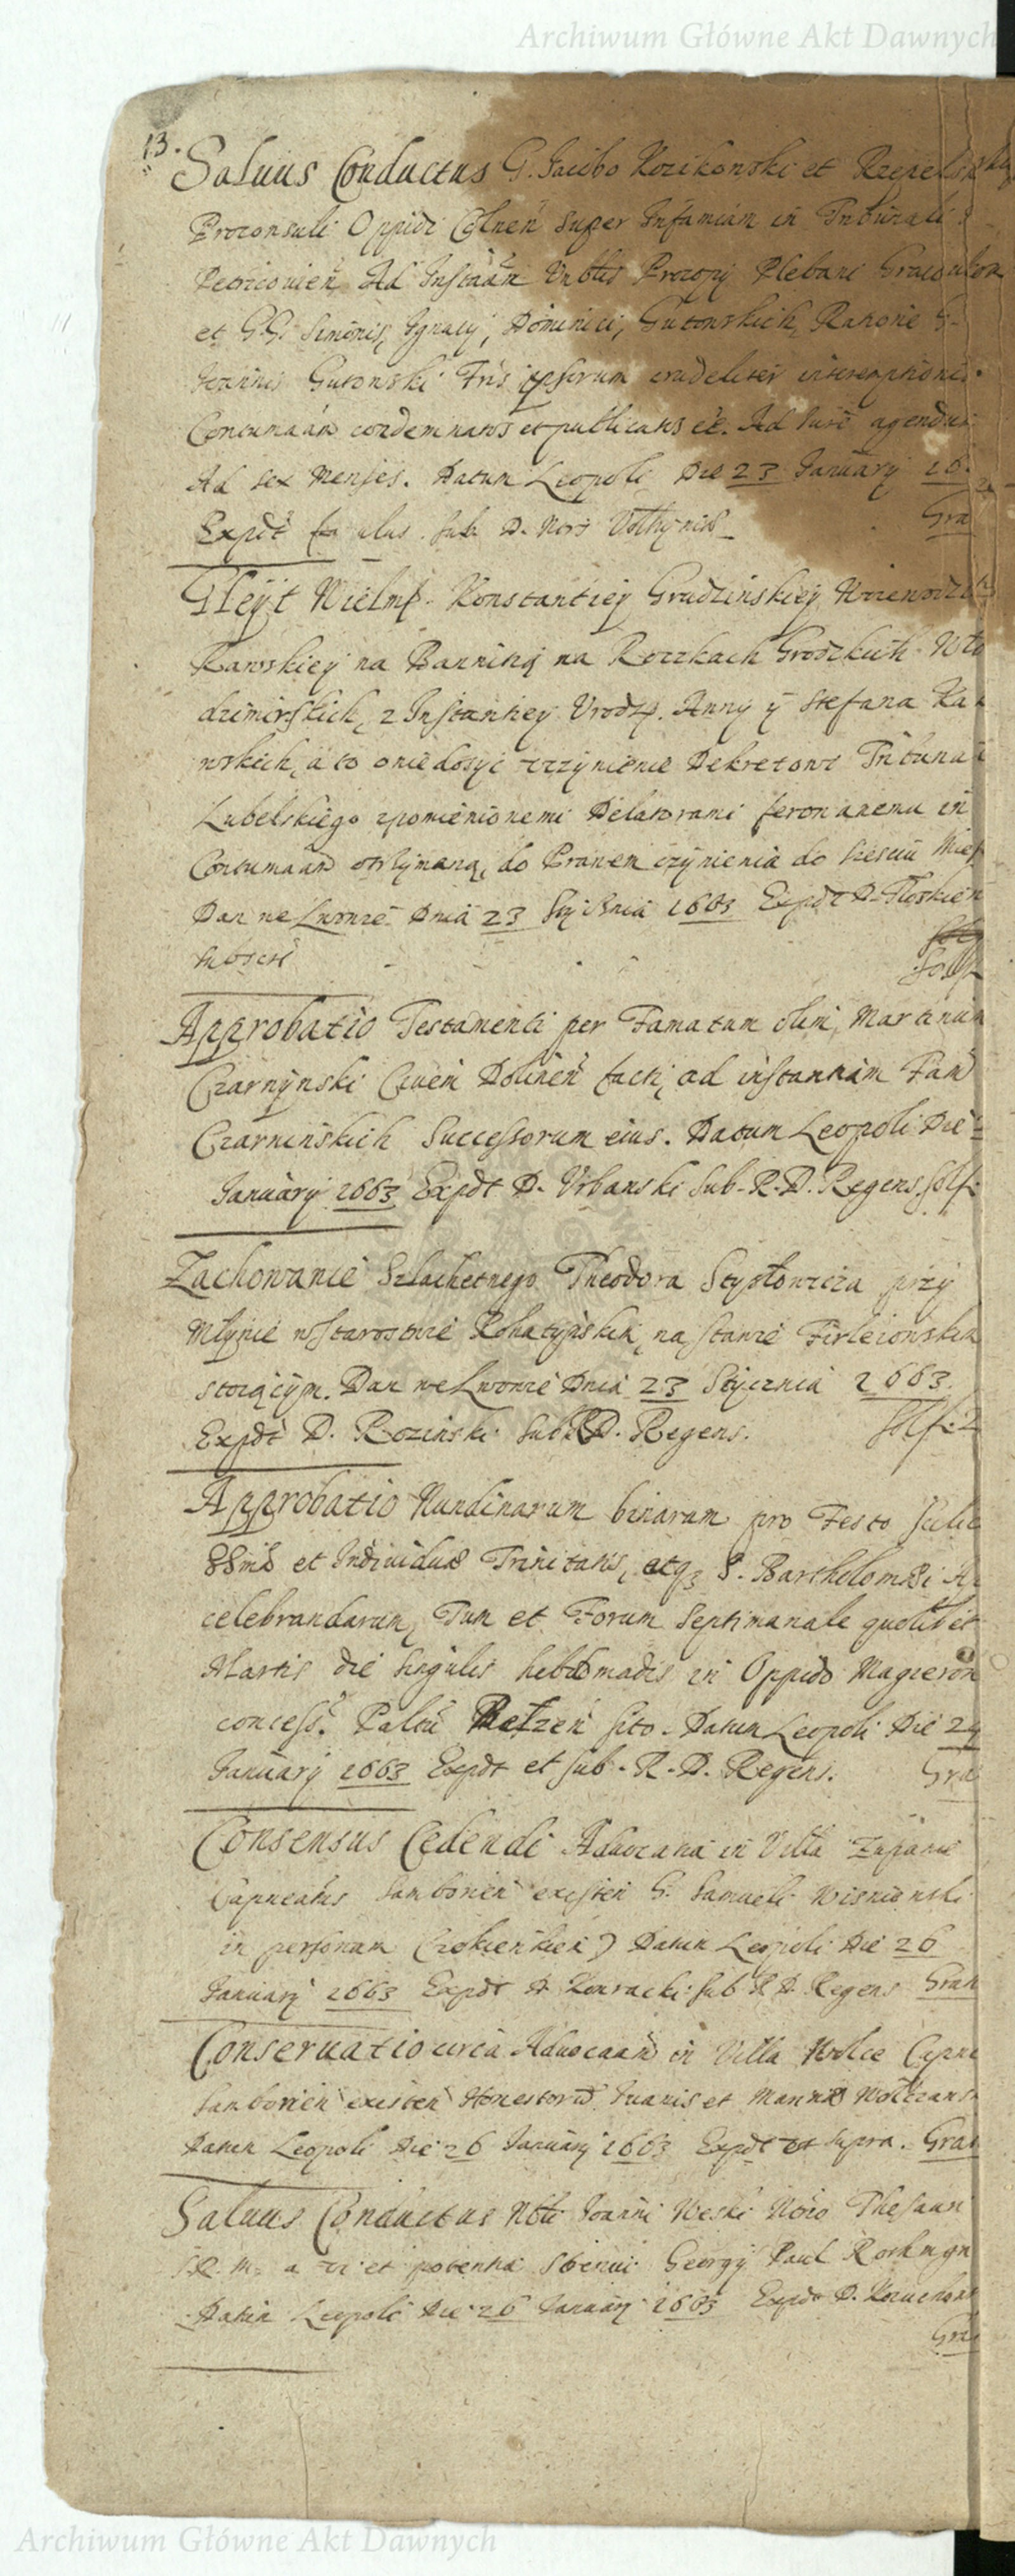 Archiwum Główne Akt Dawnych
13.
Saluus Conductus G. Jacobo Kozikowski et
Proconsuli Oppidi Colnen Super Infamiam in Tribunali
Petricouien Ad Instaãm Vnblis Procopij Plebani
et GG. Simonis, Ignacij, Dominici, Gutowskich, Ratione G.
Joannis Gutowski Fris ipsorum crudeliter interemptionis
Contumaãm condemnatos et publicatos ee. Ad Jure agendum
Ad sex Menses. Datum Leopoli Die 23 January 16
Expdt sub D. Nors Volhyniae
Gra
Gleyt Wielmż. Konstantiey Grudzinskiey Woiewodzi
Rawskiey na Bannitią na Roczkach Grodzkich Wło
dzimirskich, z Instantiey Vrodz. Anny y Stefana Ka
wskich, a to o niedosyć vczynienie Dekretowi Tribuna
Lubelskiego zpomienionemi Delatorami ferowanemu in
Contumaãm otrzymaną, do Prawem czynienia do sześciu Mies
Dan we Lwowie Dnia 23 Stycznia 1663 Expdt D.
subscri
Solf
Approbatio Testamenti per Famatum olim Martinum
Czarnynski Ciuem Dolinen facti, ad instantiam Fam
Czarninskich Successorum eius. Datum Leopoli Die
January 1663 Expdt D. Vrbanski Sub. R. D. Regens. Solf.
Zachowanie Szlachetnego Theodora Stysłowicza przy
Młynie w Starostwie Rohatyńskim, na stawie Firleiowskim
stoiącym. Dan we Lwowie Dnia 23 Stycznia 1663.
Expdt D. Rozinski Sub R D. Regens. Solf.
Approbatio Nundinarum binarum pro Festo scilic
SSmae et Individuae Trinitatis, atq3 S. Bartholomaei Ap
celebrandarum, Tum et Forum Septimanale quolibet
Martis die singulis hebdomadis in Oppido Magierow
concess. Paltu Belzen sito. Datum Leopoli Die 24
January 1663 Expdt et sub. R. D. Regens. Gra
Consensus Cedendi Aduocatia in Villa
Capneatus Samborien existen G. Samueli Wisniowski
in personam Datum Leopoli Die 26
January 1663 Expdt D. sub R D. Regens Gran
Conseruatio circa Aduocaãm in Villa Wolce Capne
Samborien existen Honestorum Iuanis et
Datum Leopoli Die 26 January 1663 Expdt ut supra. Gra
Saluus Conductus Nobili Joanni Weski Thesauri
S. R. M. a vi et potentia Georgij Paul
Datum Leopoli Die 26 January 1663 Expdt D.
Gra
Archiwum Główne Akt Dawnych